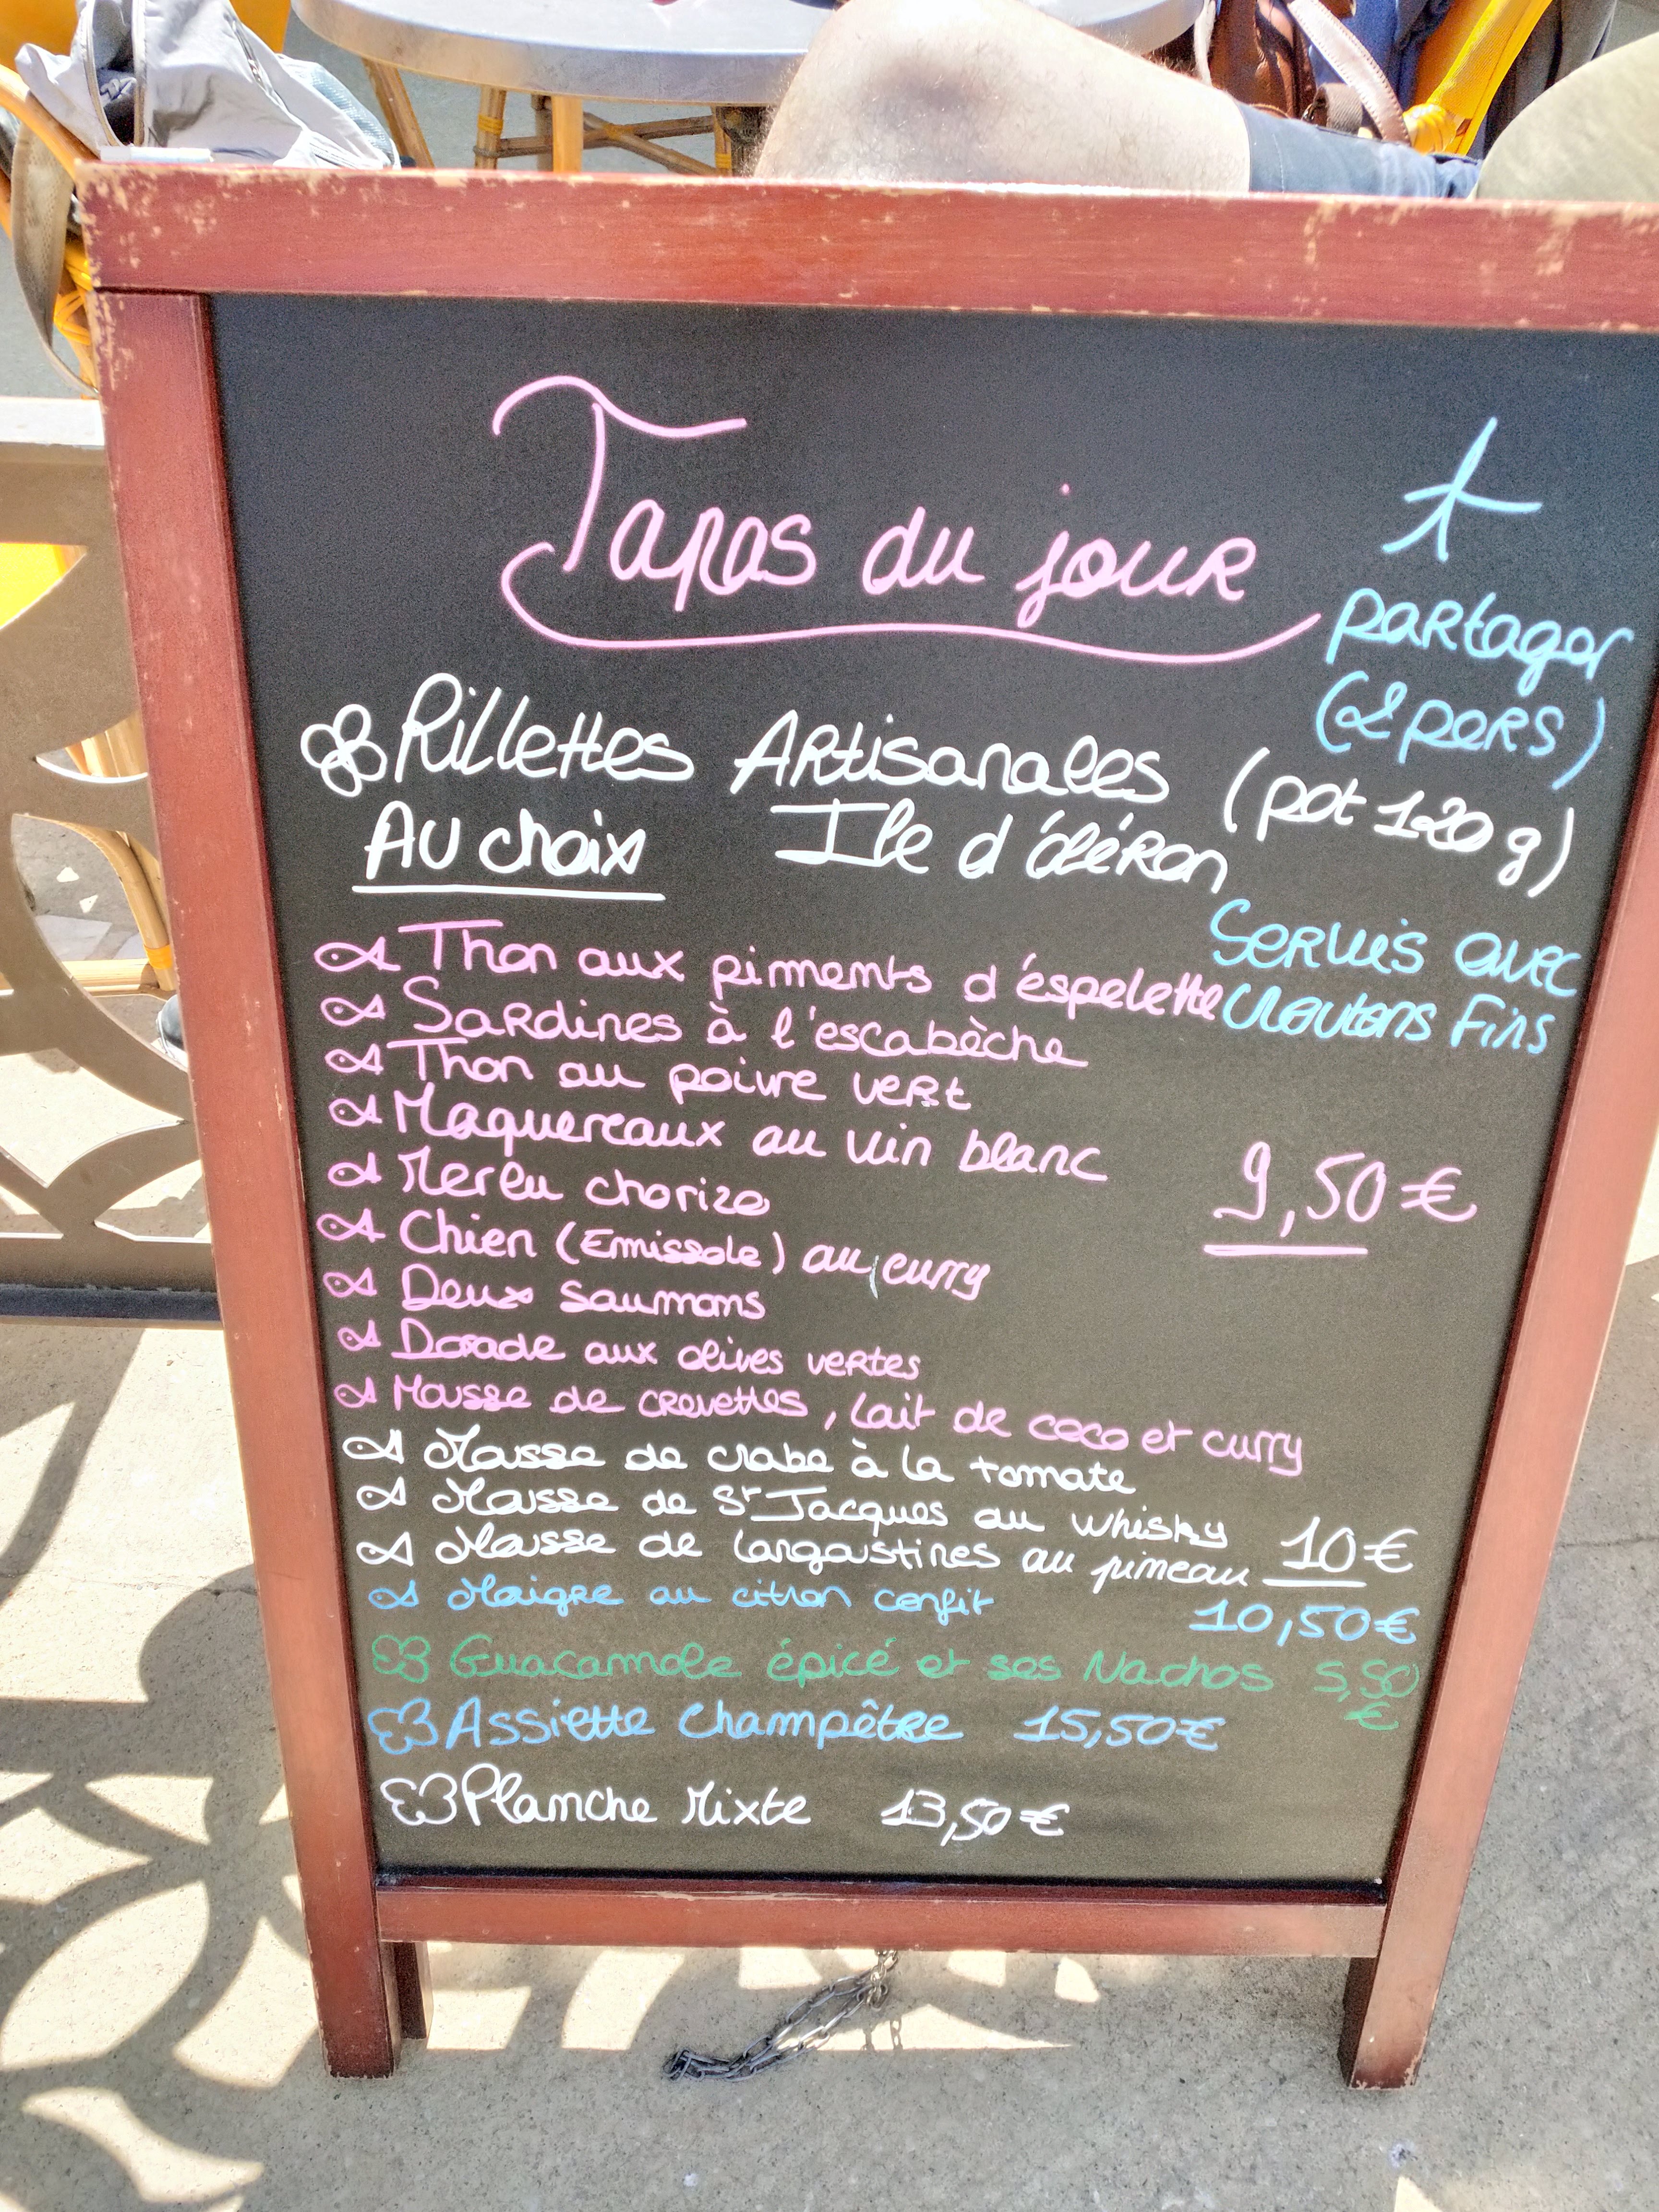 Tapas du jour
À
partager
(2 pers)
Rillettes Artisanales (pot 120 g)
Au choix Ile d'oléron
Servies avec
Croutons Fins
Thon aux piments d'éspelette
Sardines à l'escabèche
Thon au poivre vert
Maquereaux au vin blanc
Merlu chorizo
9,50 €
Chien (Emissole) au curry
Deux saumons
Dorade aux olives vertes
Mousse de crevettes, lait de coco et curry
Mousse de crabe à la tomate
Mousse de St Jacques au whisky 10 €
Mousse de langoustines au pineau
Maigre au citron confit 10,50 €
Guacamole épicé et ses Nachos 5,50
€
Assiette Champêtre 15,50 €
Planche Mixte 13,50 €